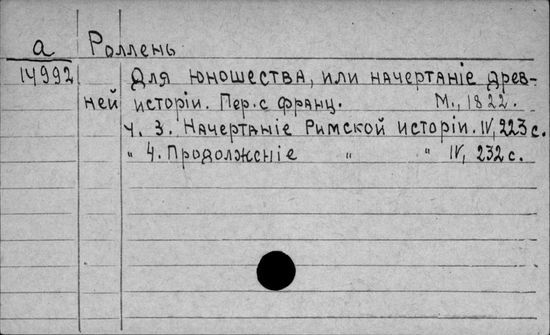 а Роллень
14992 Для юношества, или начертаніе древ-
ней исторіи. Пер. с франц. М., 1822.
ч. 3. Начертаніе Римской исторіи. IV, 223 с.
" 4. Продолженіе " " IV, 232 с.